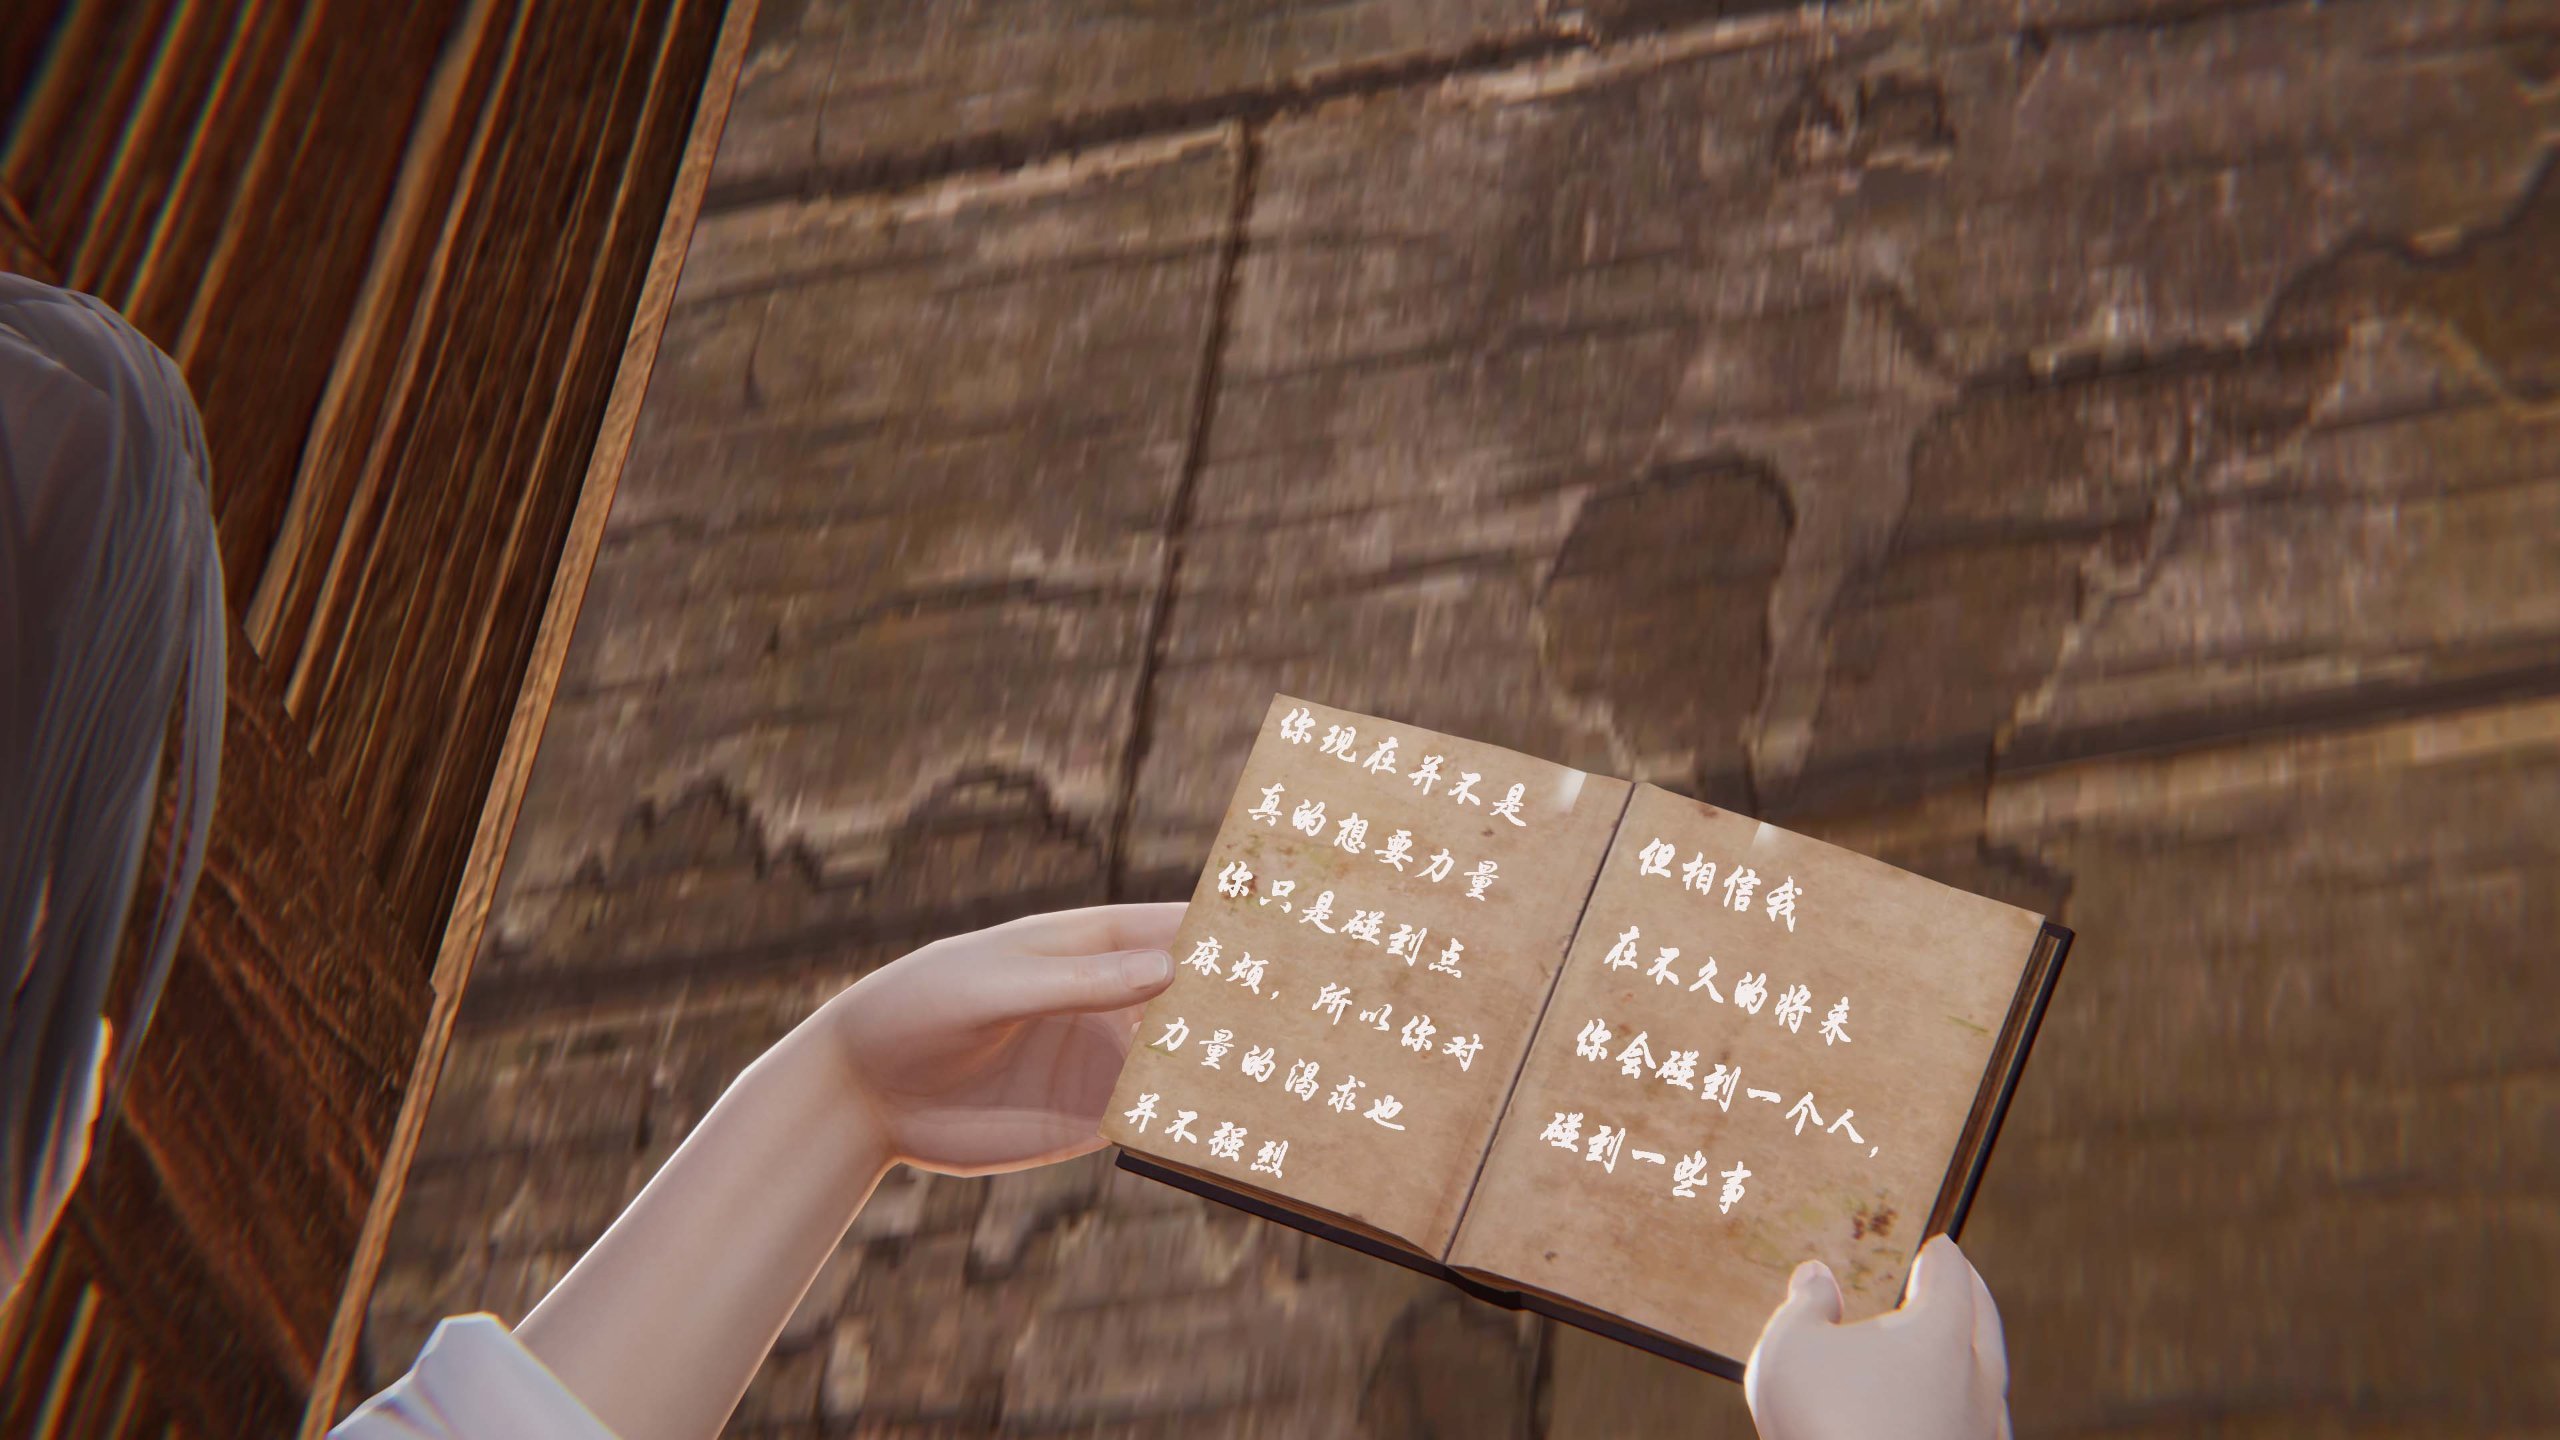 你现在并不是
真的想要力量
你只是碰到点
麻烦，所以你对
力量的渴求也
并不强烈
但相信我
在不久的将来
你会碰到一个人，
碰到一些事